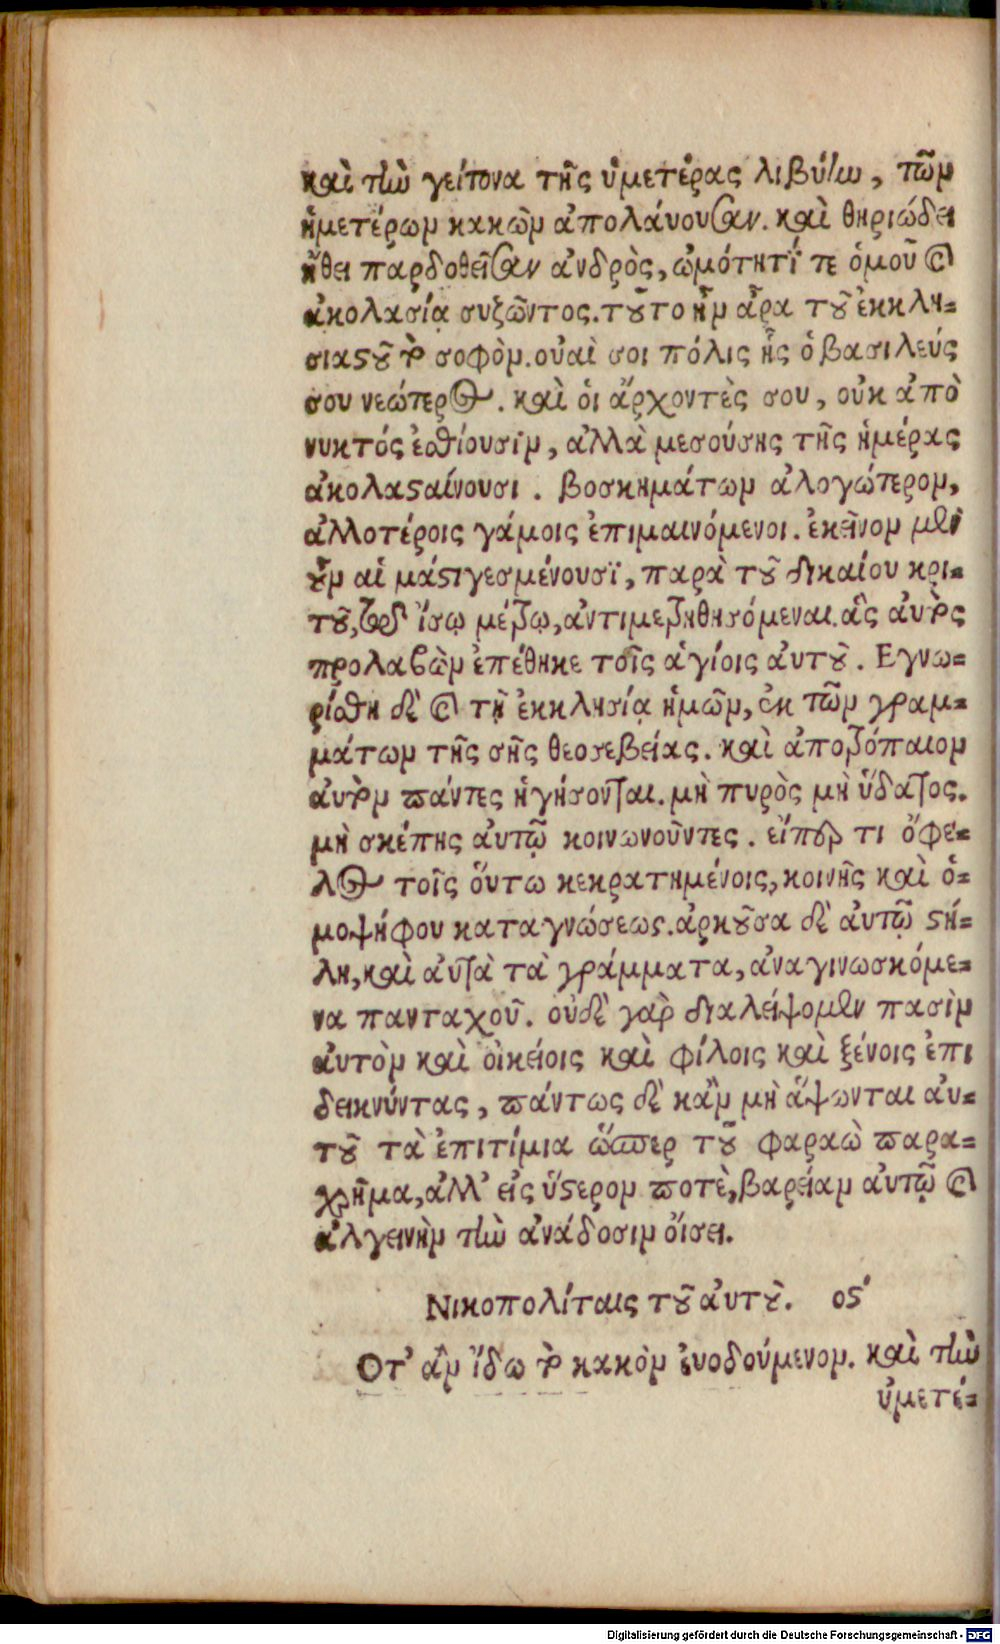 καὶ τὴν γείτονα τῆς ὑμετέρας λιβύην, τῶν
ἡμετέρων κακῶν ἀπολάυουσαν. καὶ θηριώδει
ἤθει παρδοθεῖσαν ἀνδρὸς, ὠμότητί τε ὁμοῦ καὶ
ἀκολασίᾳ συζῶντος. τοῦτο ἦν ἆρα τοῦ ἐκκλη-
σιαστοῦ τὸ σοφὸν. οὐαὶ σοι πόλις ἧς ὁ βασιλεύς
σου νεώτερος. καὶ ὁι ἄρχοντὲς σου, οὐκ ἀπὸ
νυκτός ἐσθίουσιν, ἀλλὰ μεσούσης τῆς ἡμέρας
ἀκολασταίνουσι. βοσκημάτων ἀλογώτερον,
ἀλλοτέροις γάμοις ἐπιμαινόμενοι. ἐκεῖνον μὲν
οὖν αἱ μάστιγεσμένουσϊ, παρὰ τοῦ δικαίου κρι-
τοῦ, τῷ ἴσῳ μέτρῳ, ἀντιμετρηθησόμεναι. ἃς ἀυτὸς
προλαβὼν ἐπέθηκε τοῖς ἁγίοις ἀυτοῦ. Εγνω-
ρίσθη δὲ καὶ τῇ ἐκκλησίᾳ ἡμῶν, ἐκ τῶν γραμ-
μάτων τῆς σῆς θεοσεβείας. καὶ ἀποτρόπαιον
ἀυτὸν πάντες ἡγήσονται. μὴ πυρὸς μὴ ὕδατος.
μὴ σκέπης ἀυτῷ κοινωνοῦντες. εἴπερ τι ὄφε-
λος τοῖς ὅυτω κεκρατημένοις, κοινῆς καὶ ὁ-
μοψήφου καταγνώσεως. ἀρκοῦσα δὲ ἀυτῷ στή-
λη, καὶ ἀυτὰ τὰ γράμματα, ἀναγινωσκόμε-
να πανταχοῦ. οὐδὲ γὰρ διαλείψομεν πασὶν
ἀυτὸν καὶ ὀικείοις καὶ φίλοις καὶ ξένοις ἐπι
δεικνύντας, πάντως δὲ κἂν μὴ ἅψωνται ἀυ-
τοῦ τὰ ἐπιτίμια ὥσπερ τοῦ φαραὼ παρα-
χρῆμα, ἀλλ’ εἰς ὕστερον ποτὲ, βαρείαν ἀυτῷ καὶ
ἀλγεινὴν τὴν ἀνάδοσιν ὄισει.
Νικοπολίταις τοῦ ἀυτοῦ. οϛʹ
Οτ’ ἀν ἴδω τὸ κακὸν ἐυοδούμενον. καὶ τὴν
ὑμετέ-
Digitalisierung gefördert durch die Deutsche Forschungsgemeinschaft - DFG